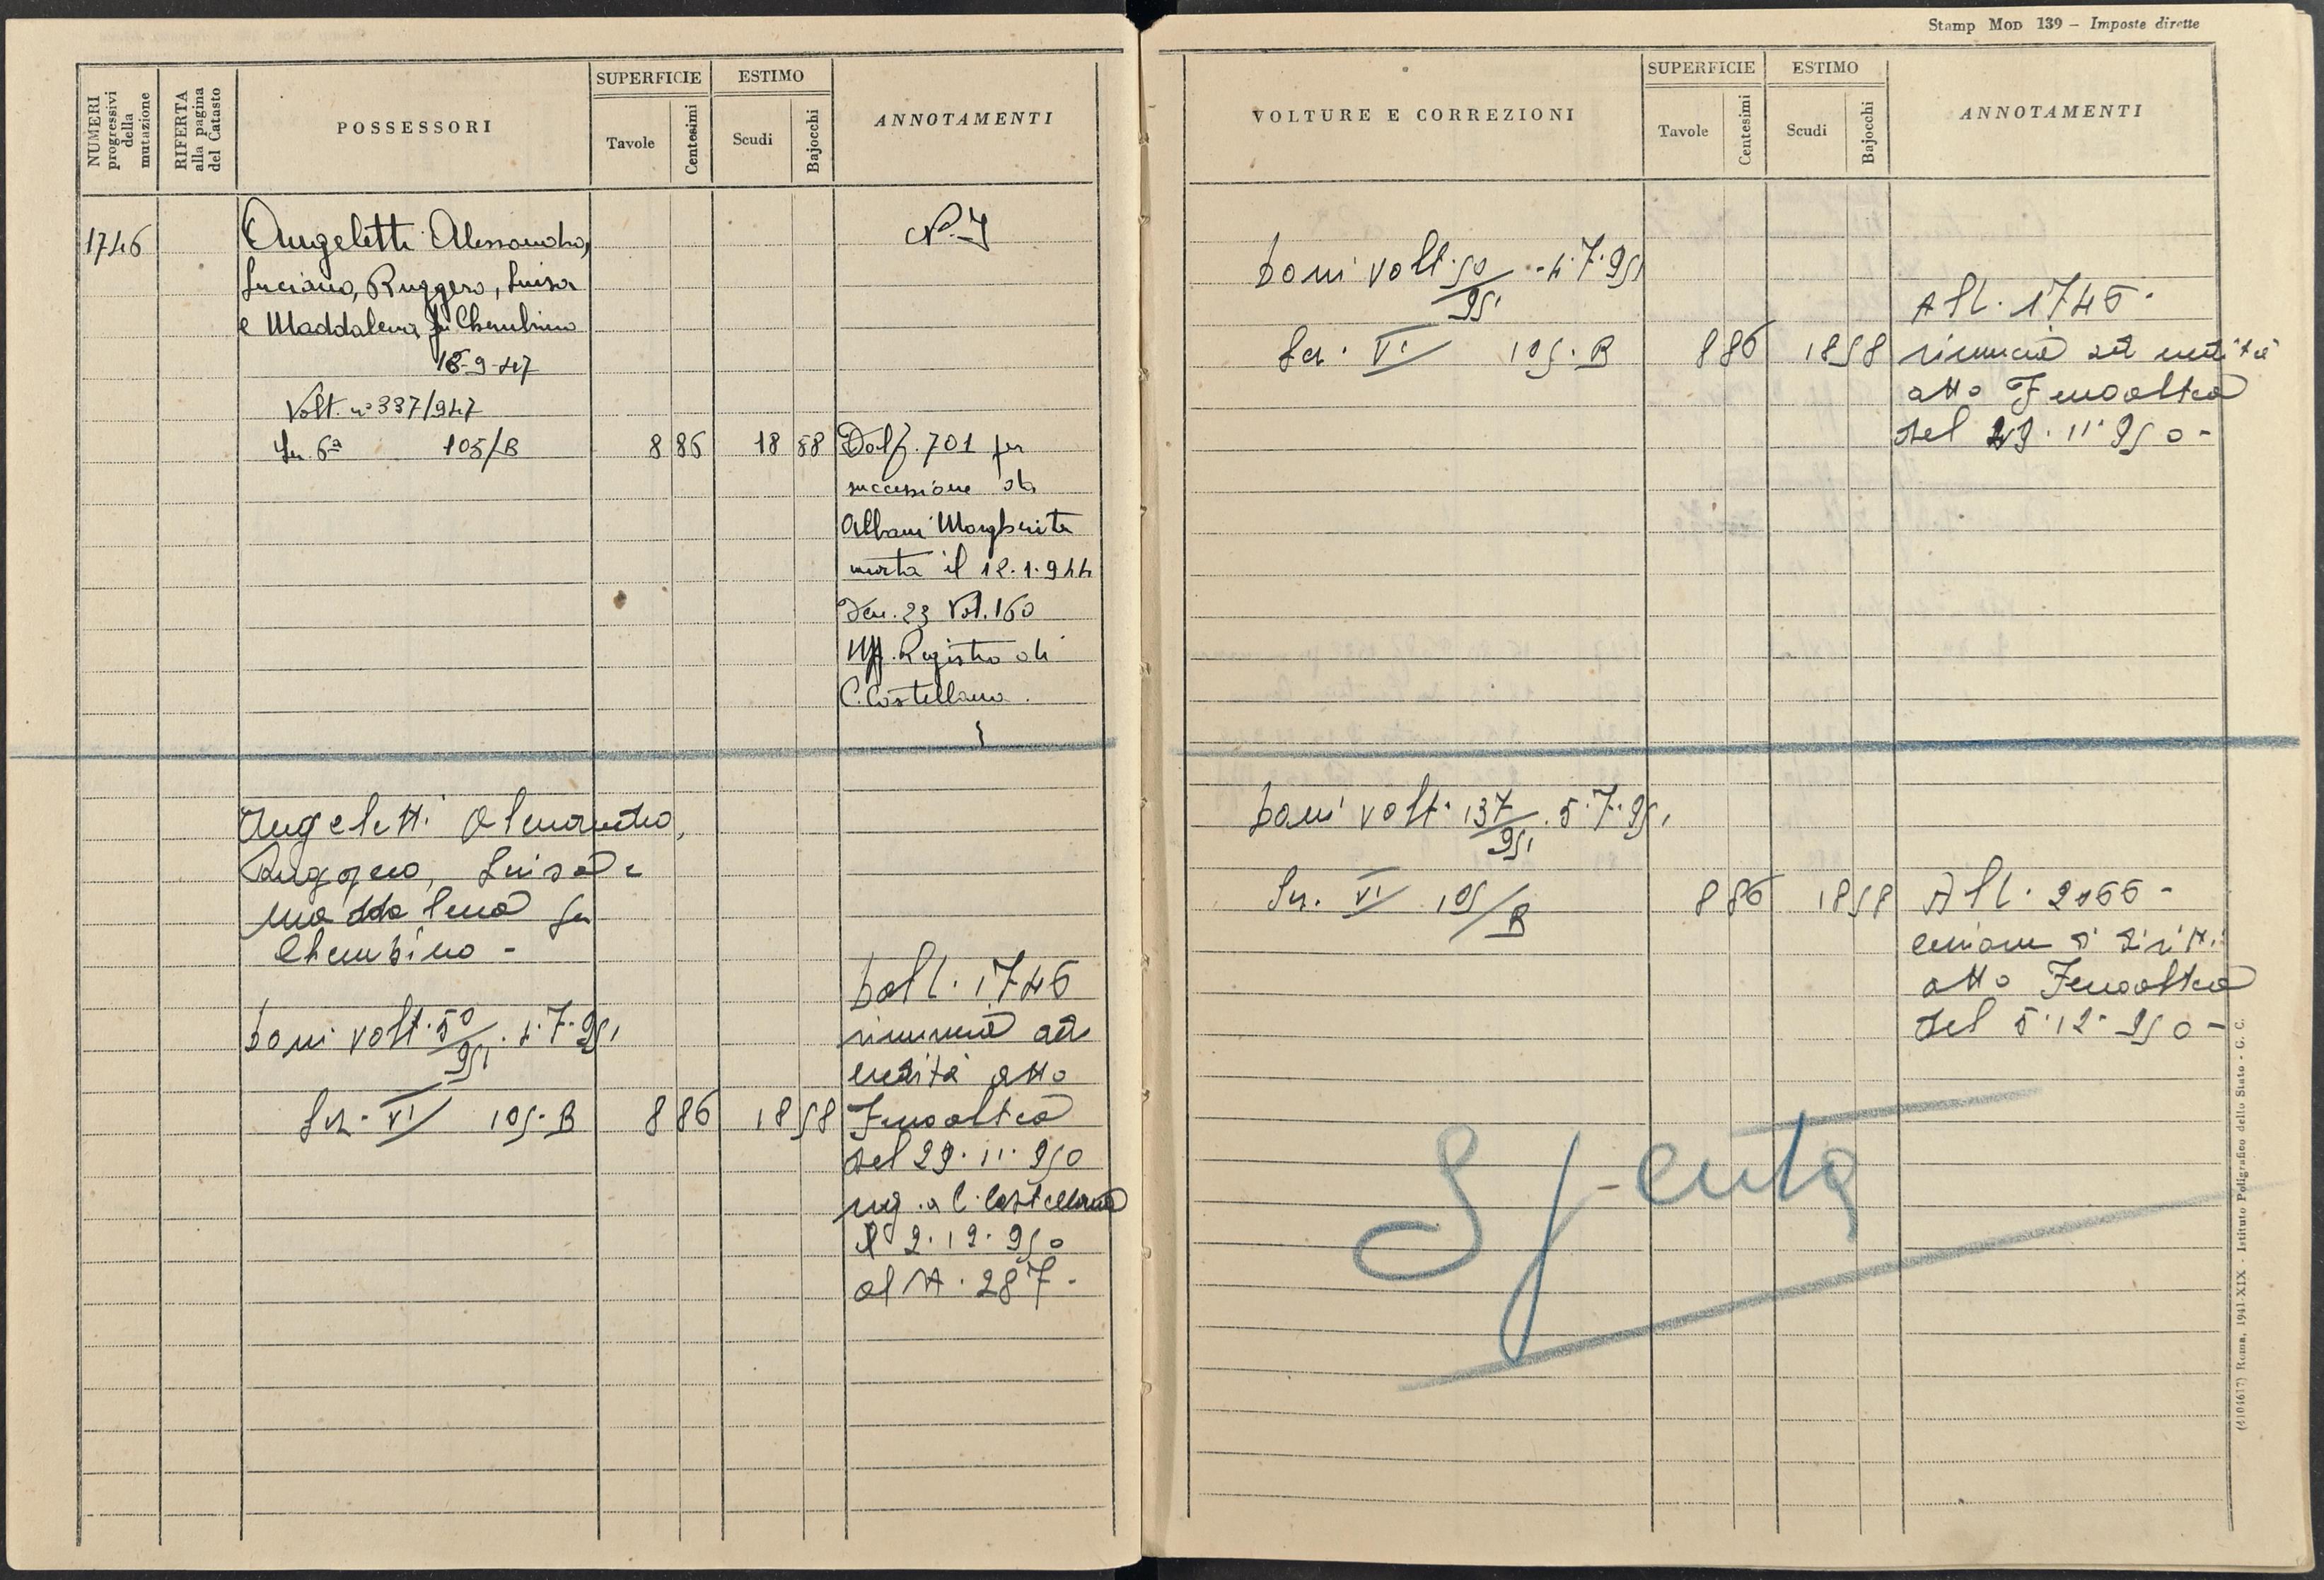 Stamp Mod 139 – Imposte dirette
NUMERI progressivi della mutazione
RIFERTA alla pagina del Catasto
POSSESSORI
SUPERFICIE
Tavole
Centesimi
ESTIMO
Scudi
Bajocchi
ANNOTAMENTI
1746
Angeletti Alessandro,
Luciano, Ruggero, Luisa
e Maddalena fu Cherubino
18-9-47
Volt. n° 337/947
Sez. 6ª 105/B 8 86 18 58
Dal f. 701 per
successione da
Albani Margherita
morta il 12.1.944
Den. 23 Vol. 160
Uff. Registro di
C. Castellana.
Angeletti Alessandro,
Ruggero, Luisa e
Maddalena fu
Cherubino -
Domi volt. 50/951. 4.7.951
Sez. VI 105. B 8 86 18 58
Dall. 1746
rinuncia ad
eredità atto
Fenoaltea
del 29.11.950
reg. a C. Castellana
il 2.12.950
al N. 287.
VOLTURE E CORREZIONI
SUPERFICIE
Tavole
Centesimi
ESTIMO
Scudi
Bajocchi
ANNOTAMENTI
Domi volt. 50/951 - 4.7.951
Sez. VI 105. B 8 86 18 58
All. 1746.
rinuncia ad eredità
atto Fenoaltea
del 29.11.950-
Domi volt. 137/951. 5.7.951
Sez. VI 105/B 8 86 18 58
All. 2066 -
cessione di diritti
atto Fenoaltea
del 5.12.950-
Spenta
(4104617) Roma, 1941-XIX - Istituto Poligrafico dello Stato - G. C.